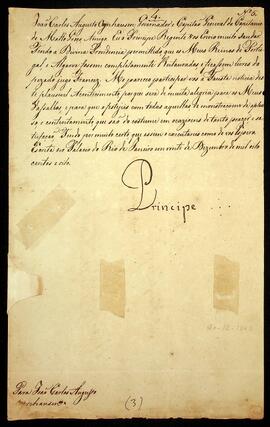 4.
Nº 5.
João Carlos Augusto Oeynhausen Governador e Capitão General da Capitania
de Matto Grosso Amigo. Eu o Principe Regente vos Envio muito Saudar.
Tendo a Divina Providencia permittido que os Meus Reinos de Portu-
gal, e Algarves fossem completamente Restaurados, e ficassem livres do
pezado jugo Francez. Me pareceo participar vos a Fausta noticia des-
te plausivel Acontecimento, por que será de muita alegria para os Meus
Vassallos, e para que o festejeis com todas aquellas demonstraçoens de aplau-
so, e contentamento que são de costume em occazioens de tanto prazer e sa-
tisfação. Tendo por muito certo que assim o executareis como de vos espero.
Escrita no Palacio do Rio de Janeiro em vinte de Dezembro de mil oito
centos e oito.
Principe
Para João Carlos Augusto
(3)